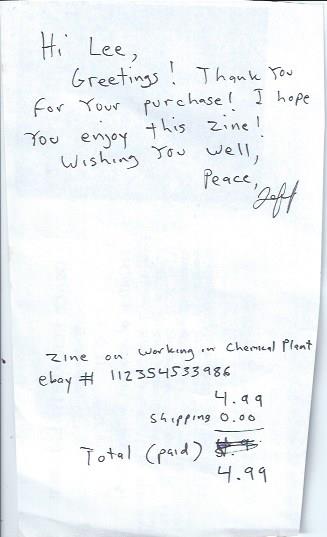 Hi Lee,
Greetings! Thank You
For Your purchase! I hope
You enjoy this zine!
Wishing You well,
Peace,
Jeff
Zine on working in Chemical Plant
ebay # 112354533986
4.99
Shipping 0.00
Total (paid)
4.99